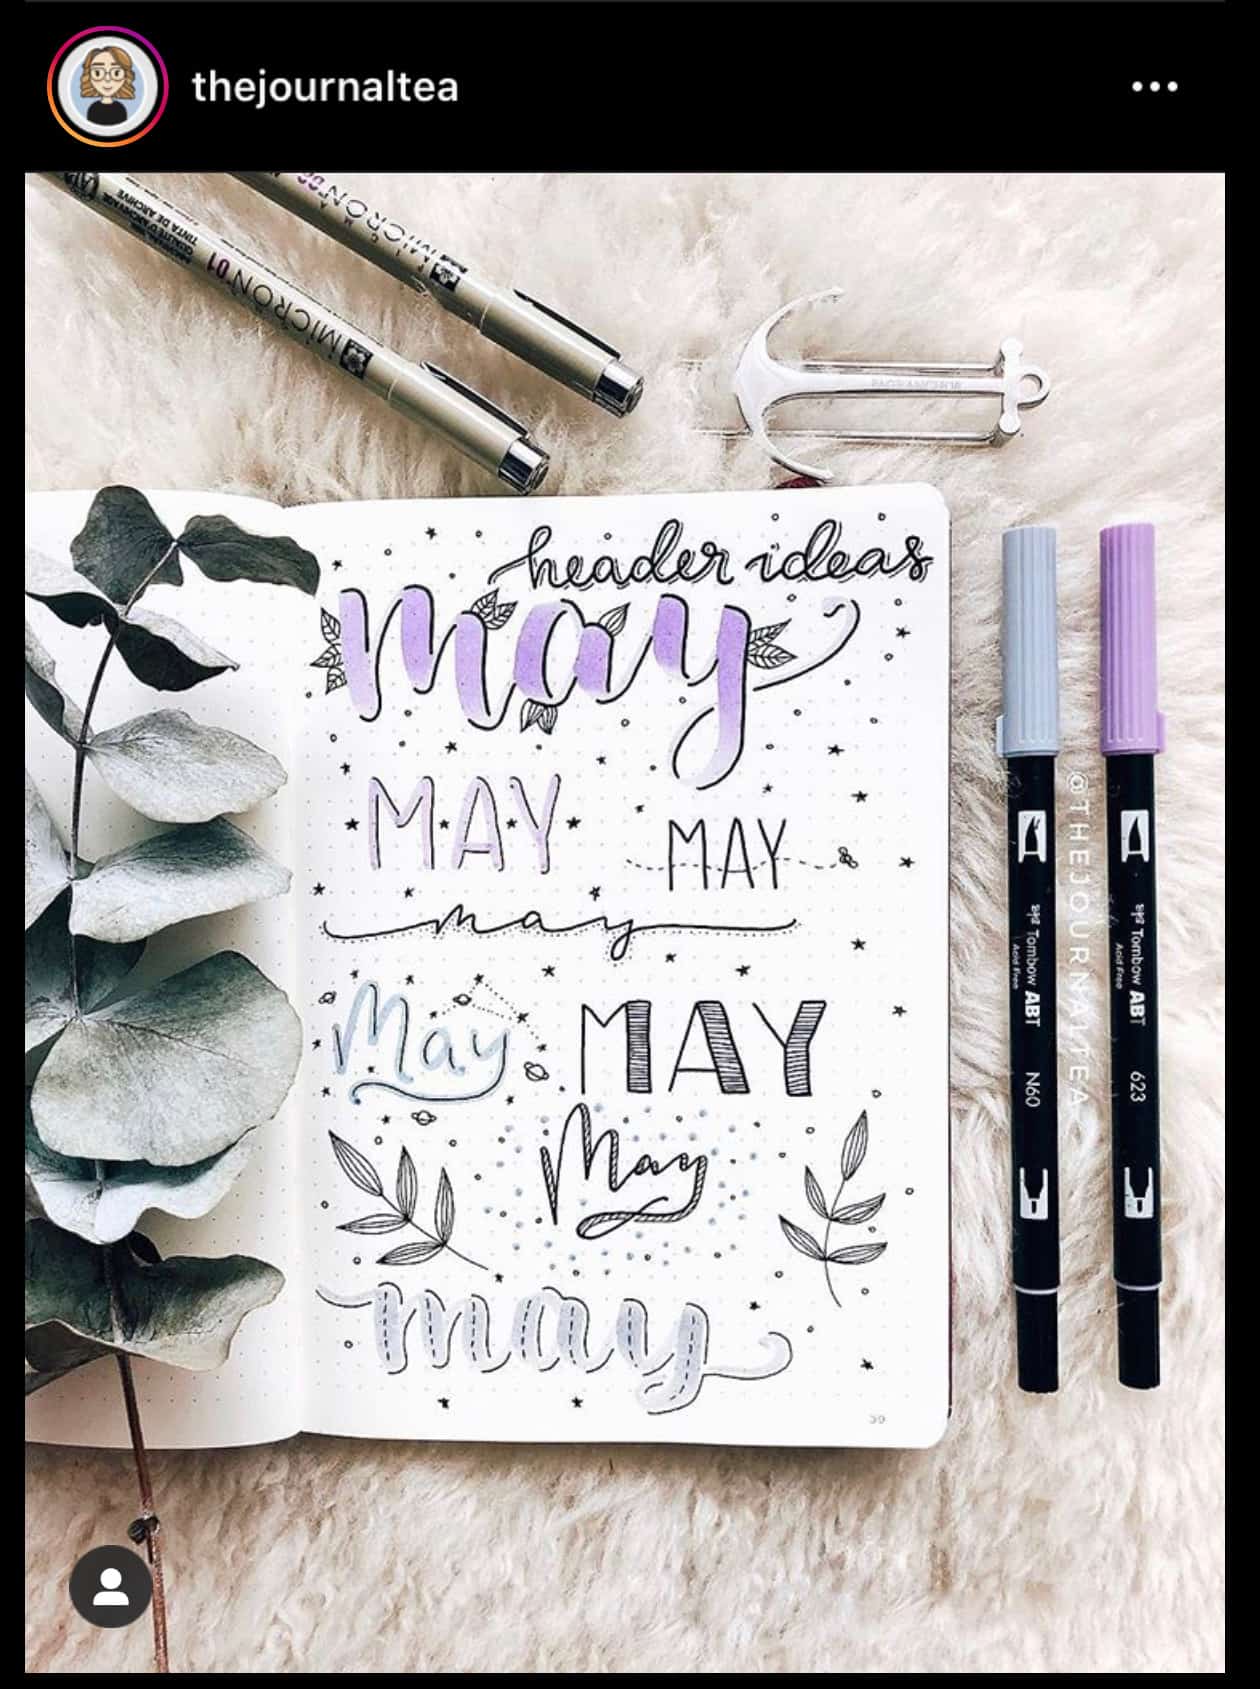 thejournaltea
MICRON
MICRON 01
TINTA DE ARCHIVE
PAGE ANCHOR
header ideas
may
MAY
MAY
may
May
MAY
May
may
39
@THEJOURNALTEA
Tombow ABT
Acid Free
N60
Tombow ABT
Acid Free
623